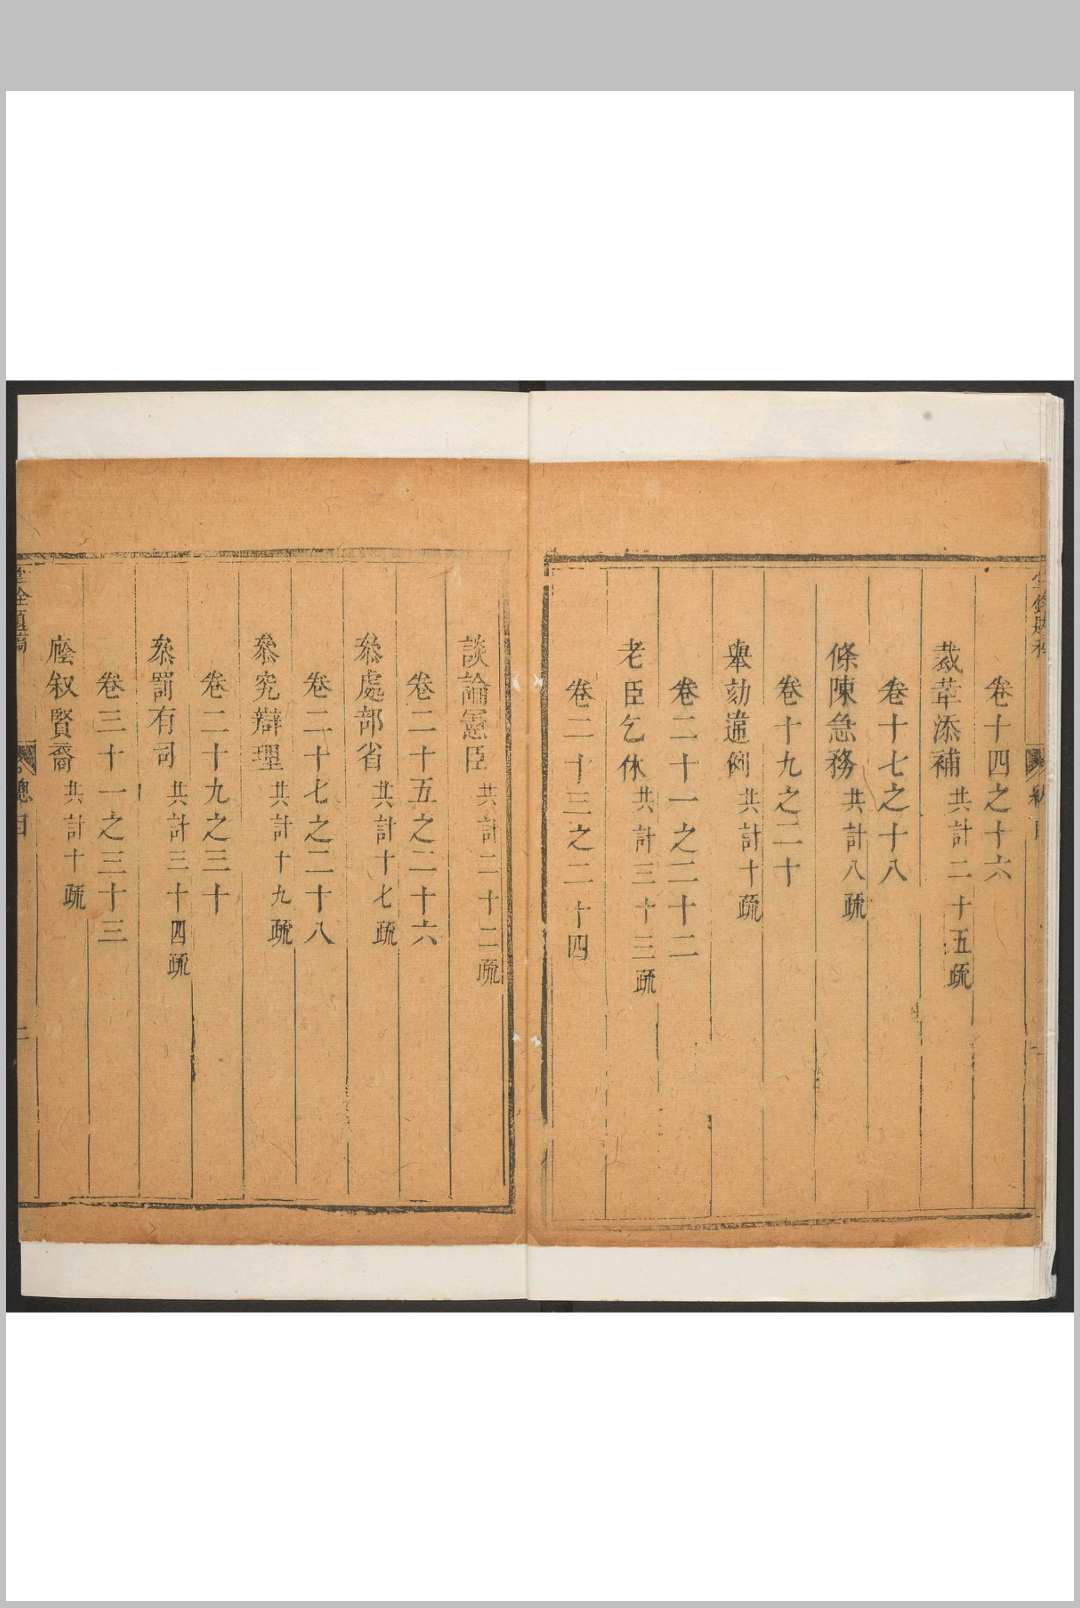 卷十四之十六
裁革添補 共計二十五疏
卷十七之十八
條陳急務 共計八疏
卷十九之二十
舉劾違例 共計十疏
卷二十一之二十二
老臣乞休 共計三十三疏
卷二十三之二十四
談論憲臣 共計二十二疏
卷二十五之二十六
叅處部省 共計十七疏
卷二十七之二十八
叅究辯理 共計十九疏
卷二十九之三十
叅罰有司 共計三十四疏
卷三十一之三十三
廕叙賢裔 共計十疏
總目